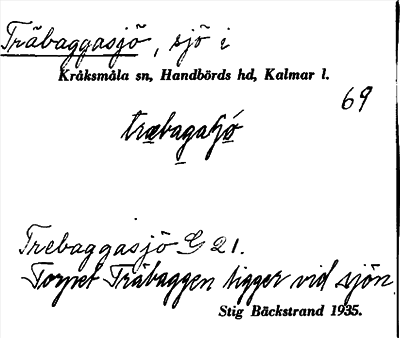 Träbaggasjö, sjö i
Kråksmåla sn, Handbörds hd, Kalmar l.
69
træbagaʃó
Trebaggasjö G 21.
Torpet Träbaggen ligger vid sjön.
Stig Bäckstrand 1935.